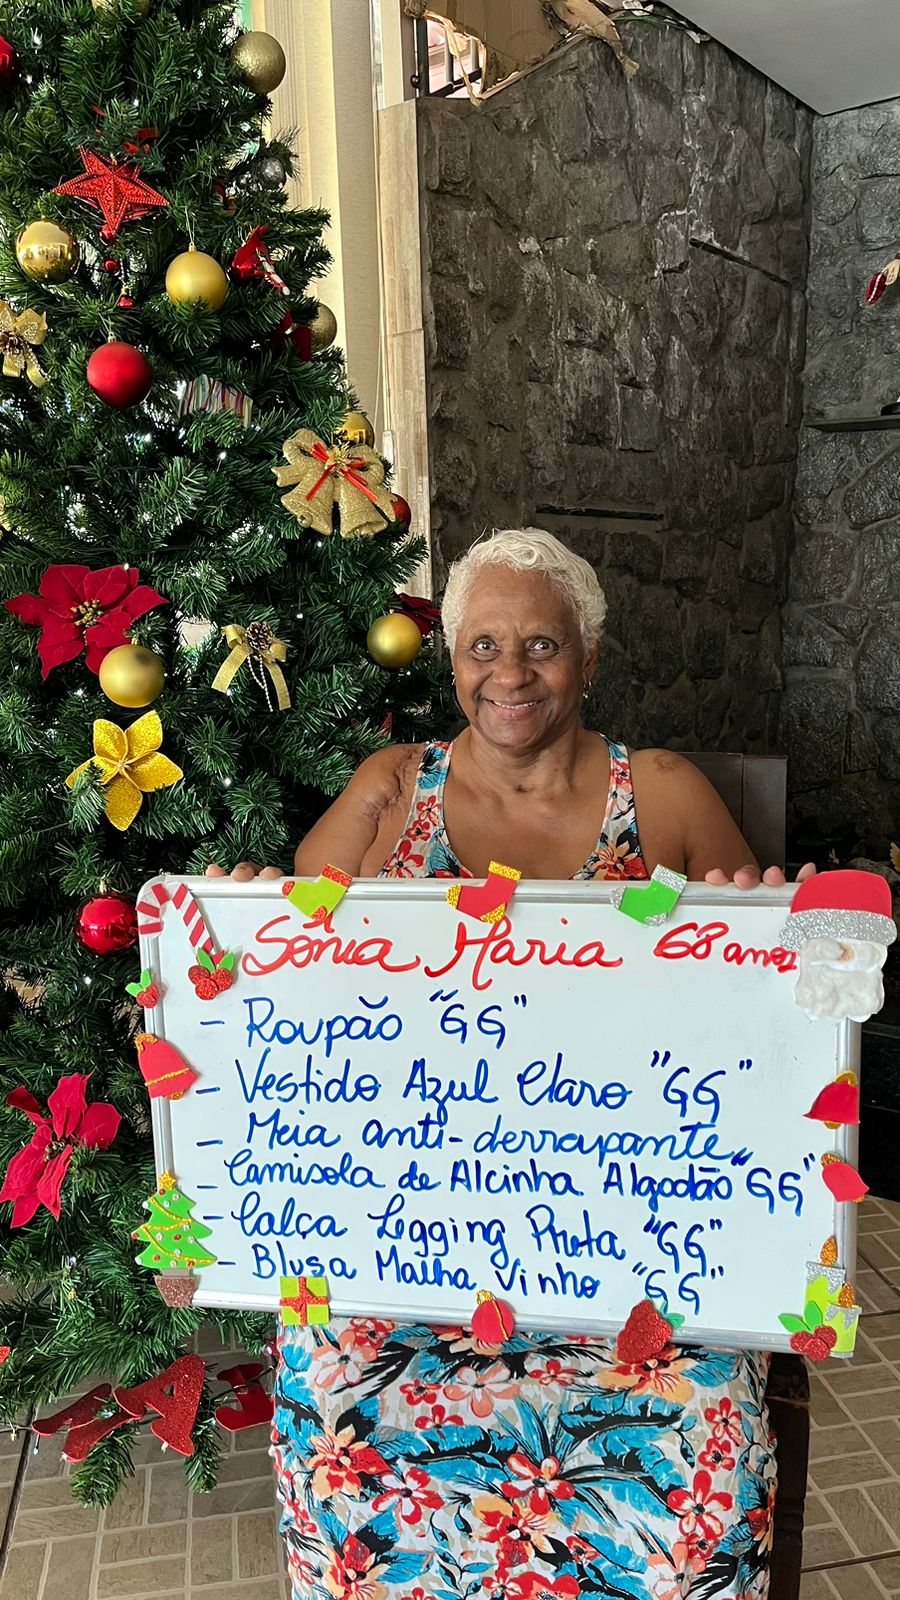 Sônia Maria 68 anos
- Roupão "GG"
- Vestido Azul Claro "GG"
- Meia anti-derrapante
- Camisola de Alcinha Algodão "GG"
- Calça Legging Preta "GG"
- Blusa Malha Vinho "GG"